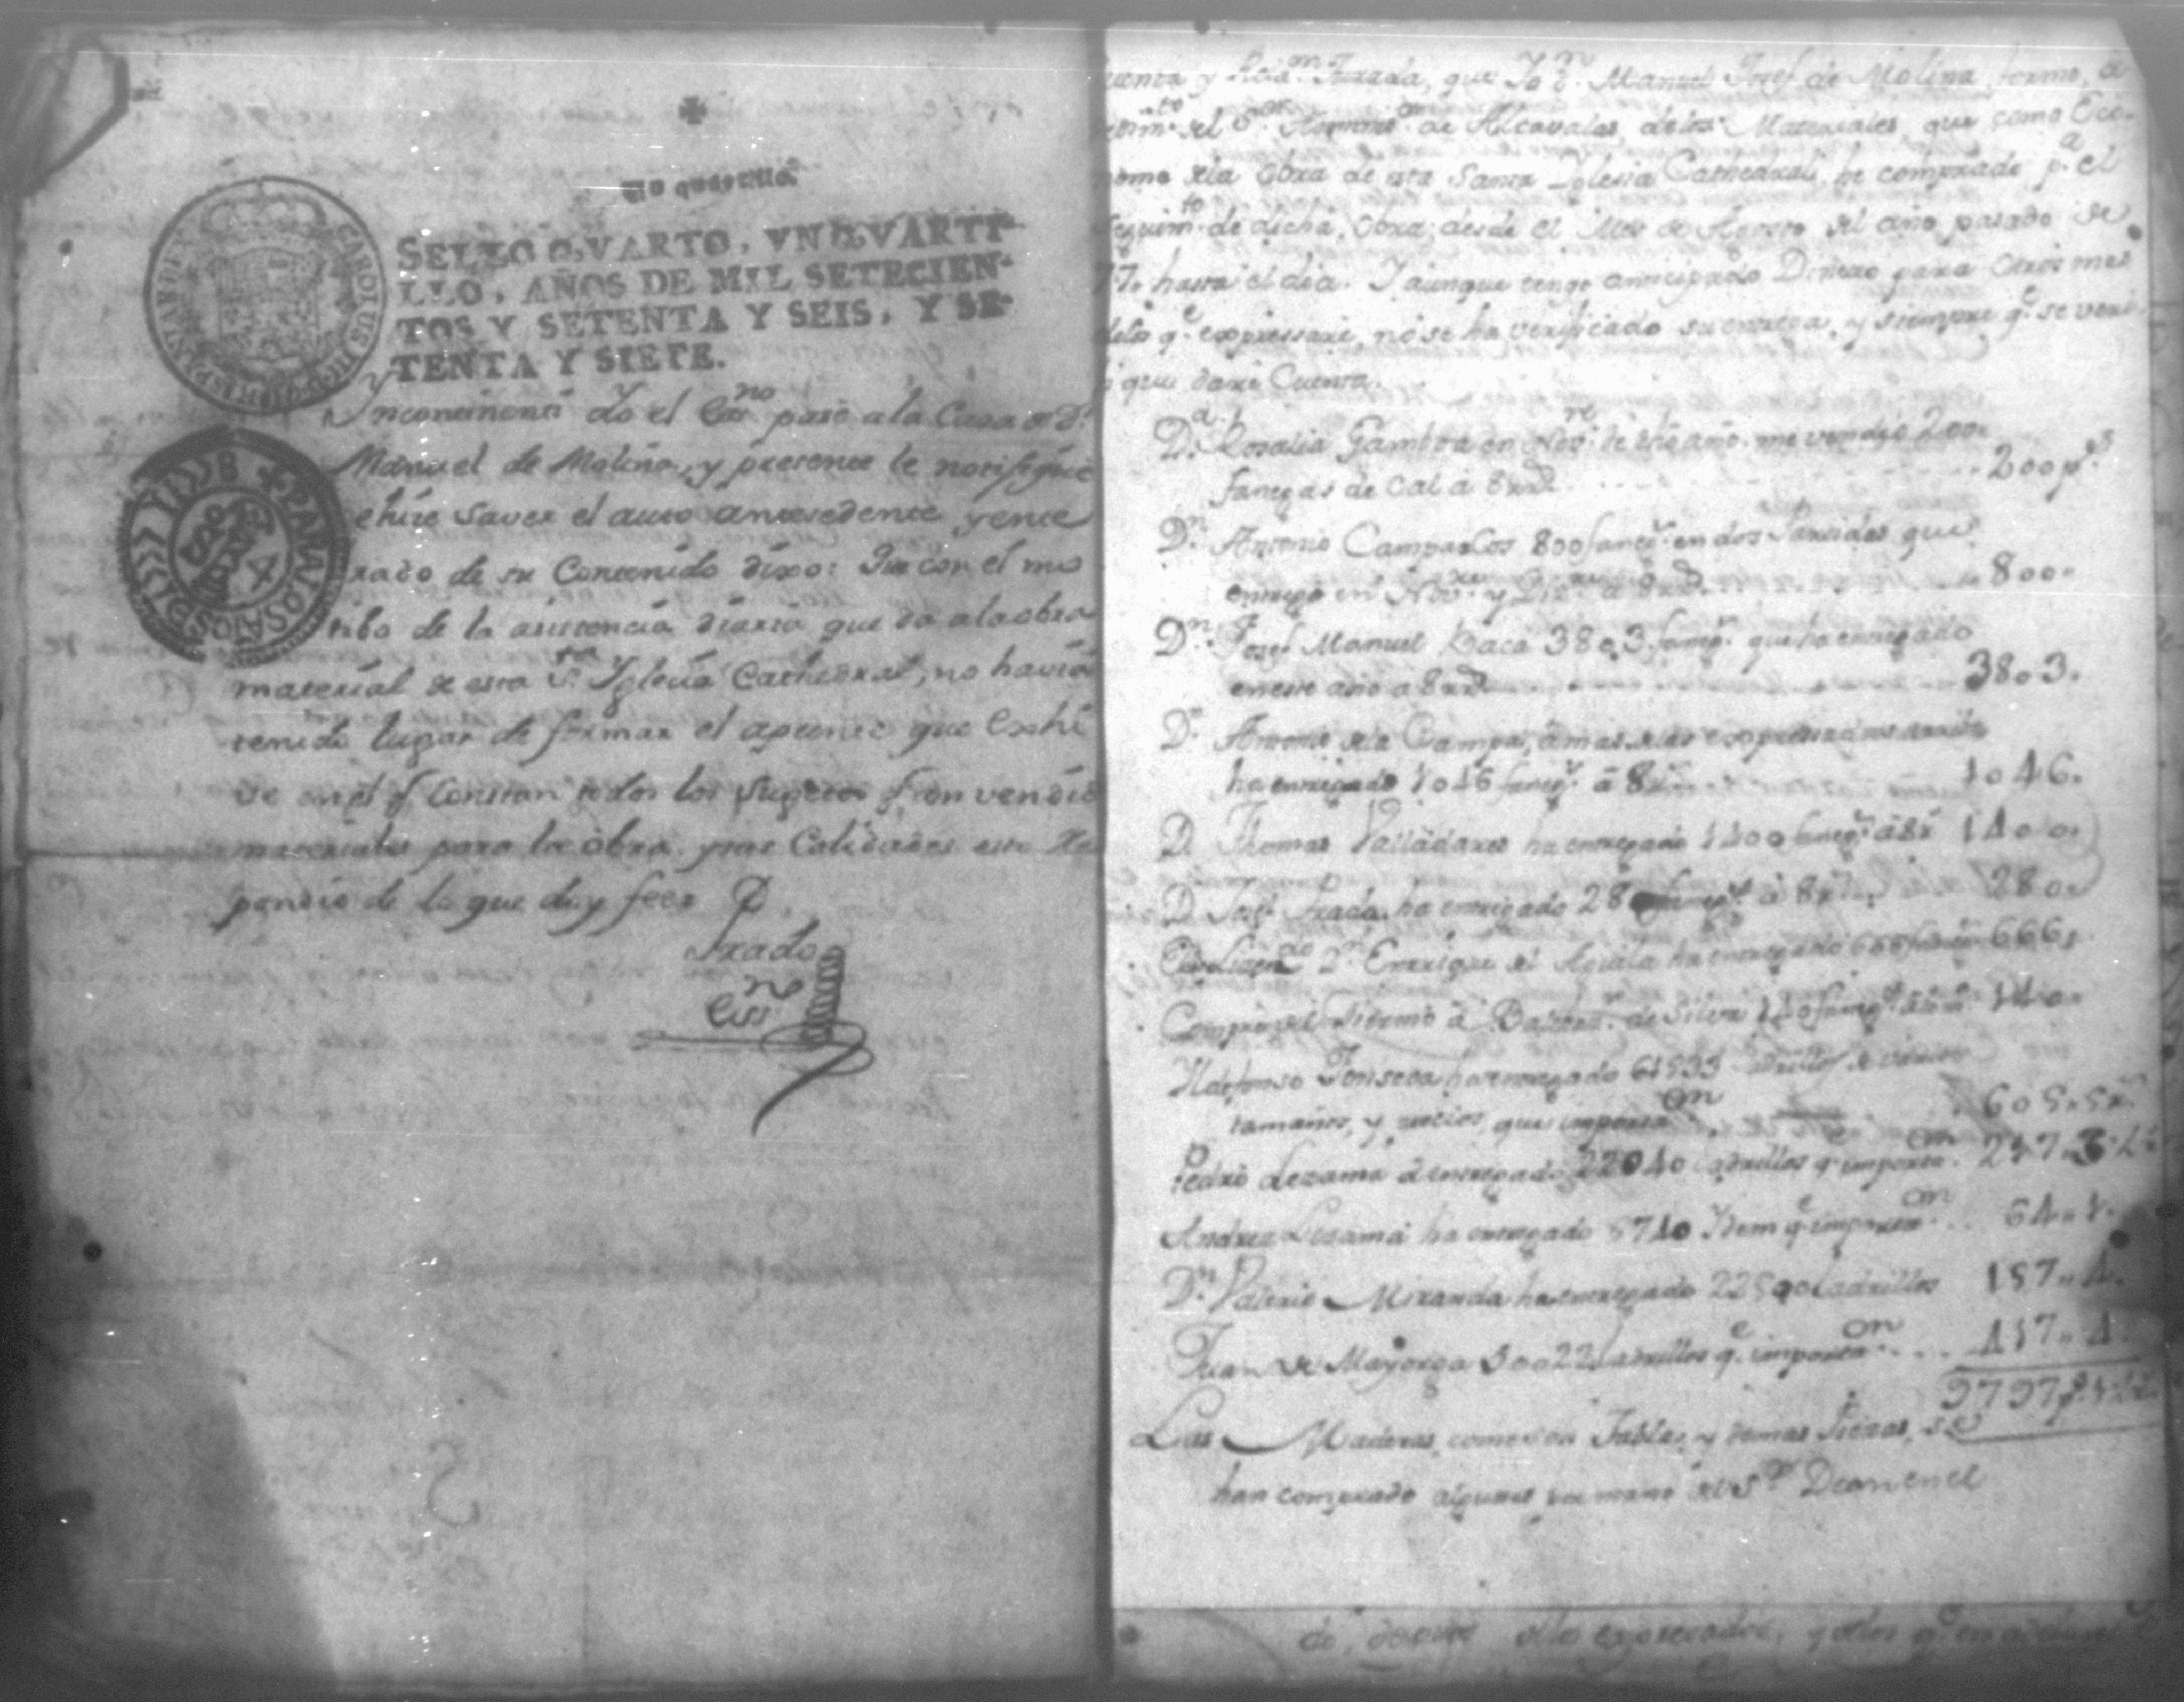 Un quartillo.
SELLO QVARTO, VN QVARTI-
LLO, AÑOS DE MIL SETECIEN-
TOS Y SETENTA Y SEIS, Y SE-
TENTA Y SIETE.
Yncontinenti Yo el Essno pasé a la Casa de Dn
Manuel de Molina, y presente le notifiqué
e hice Saver el auto antesedente y ente
rado de su Contenido dixo: Que con el mo
tibo de la asistencia diaria que da a la obra
material de esta Sta Yglecia Cathedral, no havia
tenido lugar de formar el apunte que Exhi
ve en el q Constan todos los Sugetos q an vendido
materiales para la obra, y sus Calidades esto Res
pondió de lo que doy fee
Prado
Essno
Cuenta y Relasn Jurada, que Yo Dn Manuel Josef de Molina formo, a
del Sor Admmor de Alcavalas, de los Materiales que como Eco-
nomo de la Obra de esta Santa Yglesia Cathedral, he comprado pa el
seguimto de dicha Obra desde el Mes de Agosto del año pasado de
77. hasta el dia. Y aunque tengo anticipado Dinero para otros mas
delo qe expressaré, no se ha verificado su entrega, y siempre qe se veri
que daré Cuenta.
Da Rosalia Gamboa en Nove de dho año me vendió 200
fanegas de Cal a 8 rrs 200 ps
Dn Antonio Campo Cos 800 faneg en dos Partidas que
entregó en Nove y Dize a 8 rrs 800.
Dn Josef Manuel Baca 3803 faneg. que ha entregado
en este año a 8 rrs 3803.
Dn Antonio de la Campa, a mas de las expressadas arriba
ha entregado 1046 faneg. a 8 rs 1046.
D Thomas Valladares ha entregado 1400 faneg a 8 rs 1400.
D Josef Prada ha entregado 280 faneg. a 8 rs 280.
El Licendo Dn Enrrique del Aguila ha entregado 666 faneg 666.
Compré Balthar de Silva 140 faneg 140.
Yldefonso Fonseca ha entregado 61533 Ladrillos de varios
tamaños, y precios, que importaon 605..5 rs
Pedro Lezama a entregado 22040 Ladrillos qe importaon
Andres Lezama ha entregado 8740 Ydem qe importaon 64..1.
Dn Valerio Miranda ha entregado 22500 Ladrillos 157..4.
Juan de Mayorga Ladrillos qe importaon
Las Maderas, como son Tablas, y demas Piezas, se
han comprado algunas por mano del Sor Dean en el
do, de los expresados, y delos qe